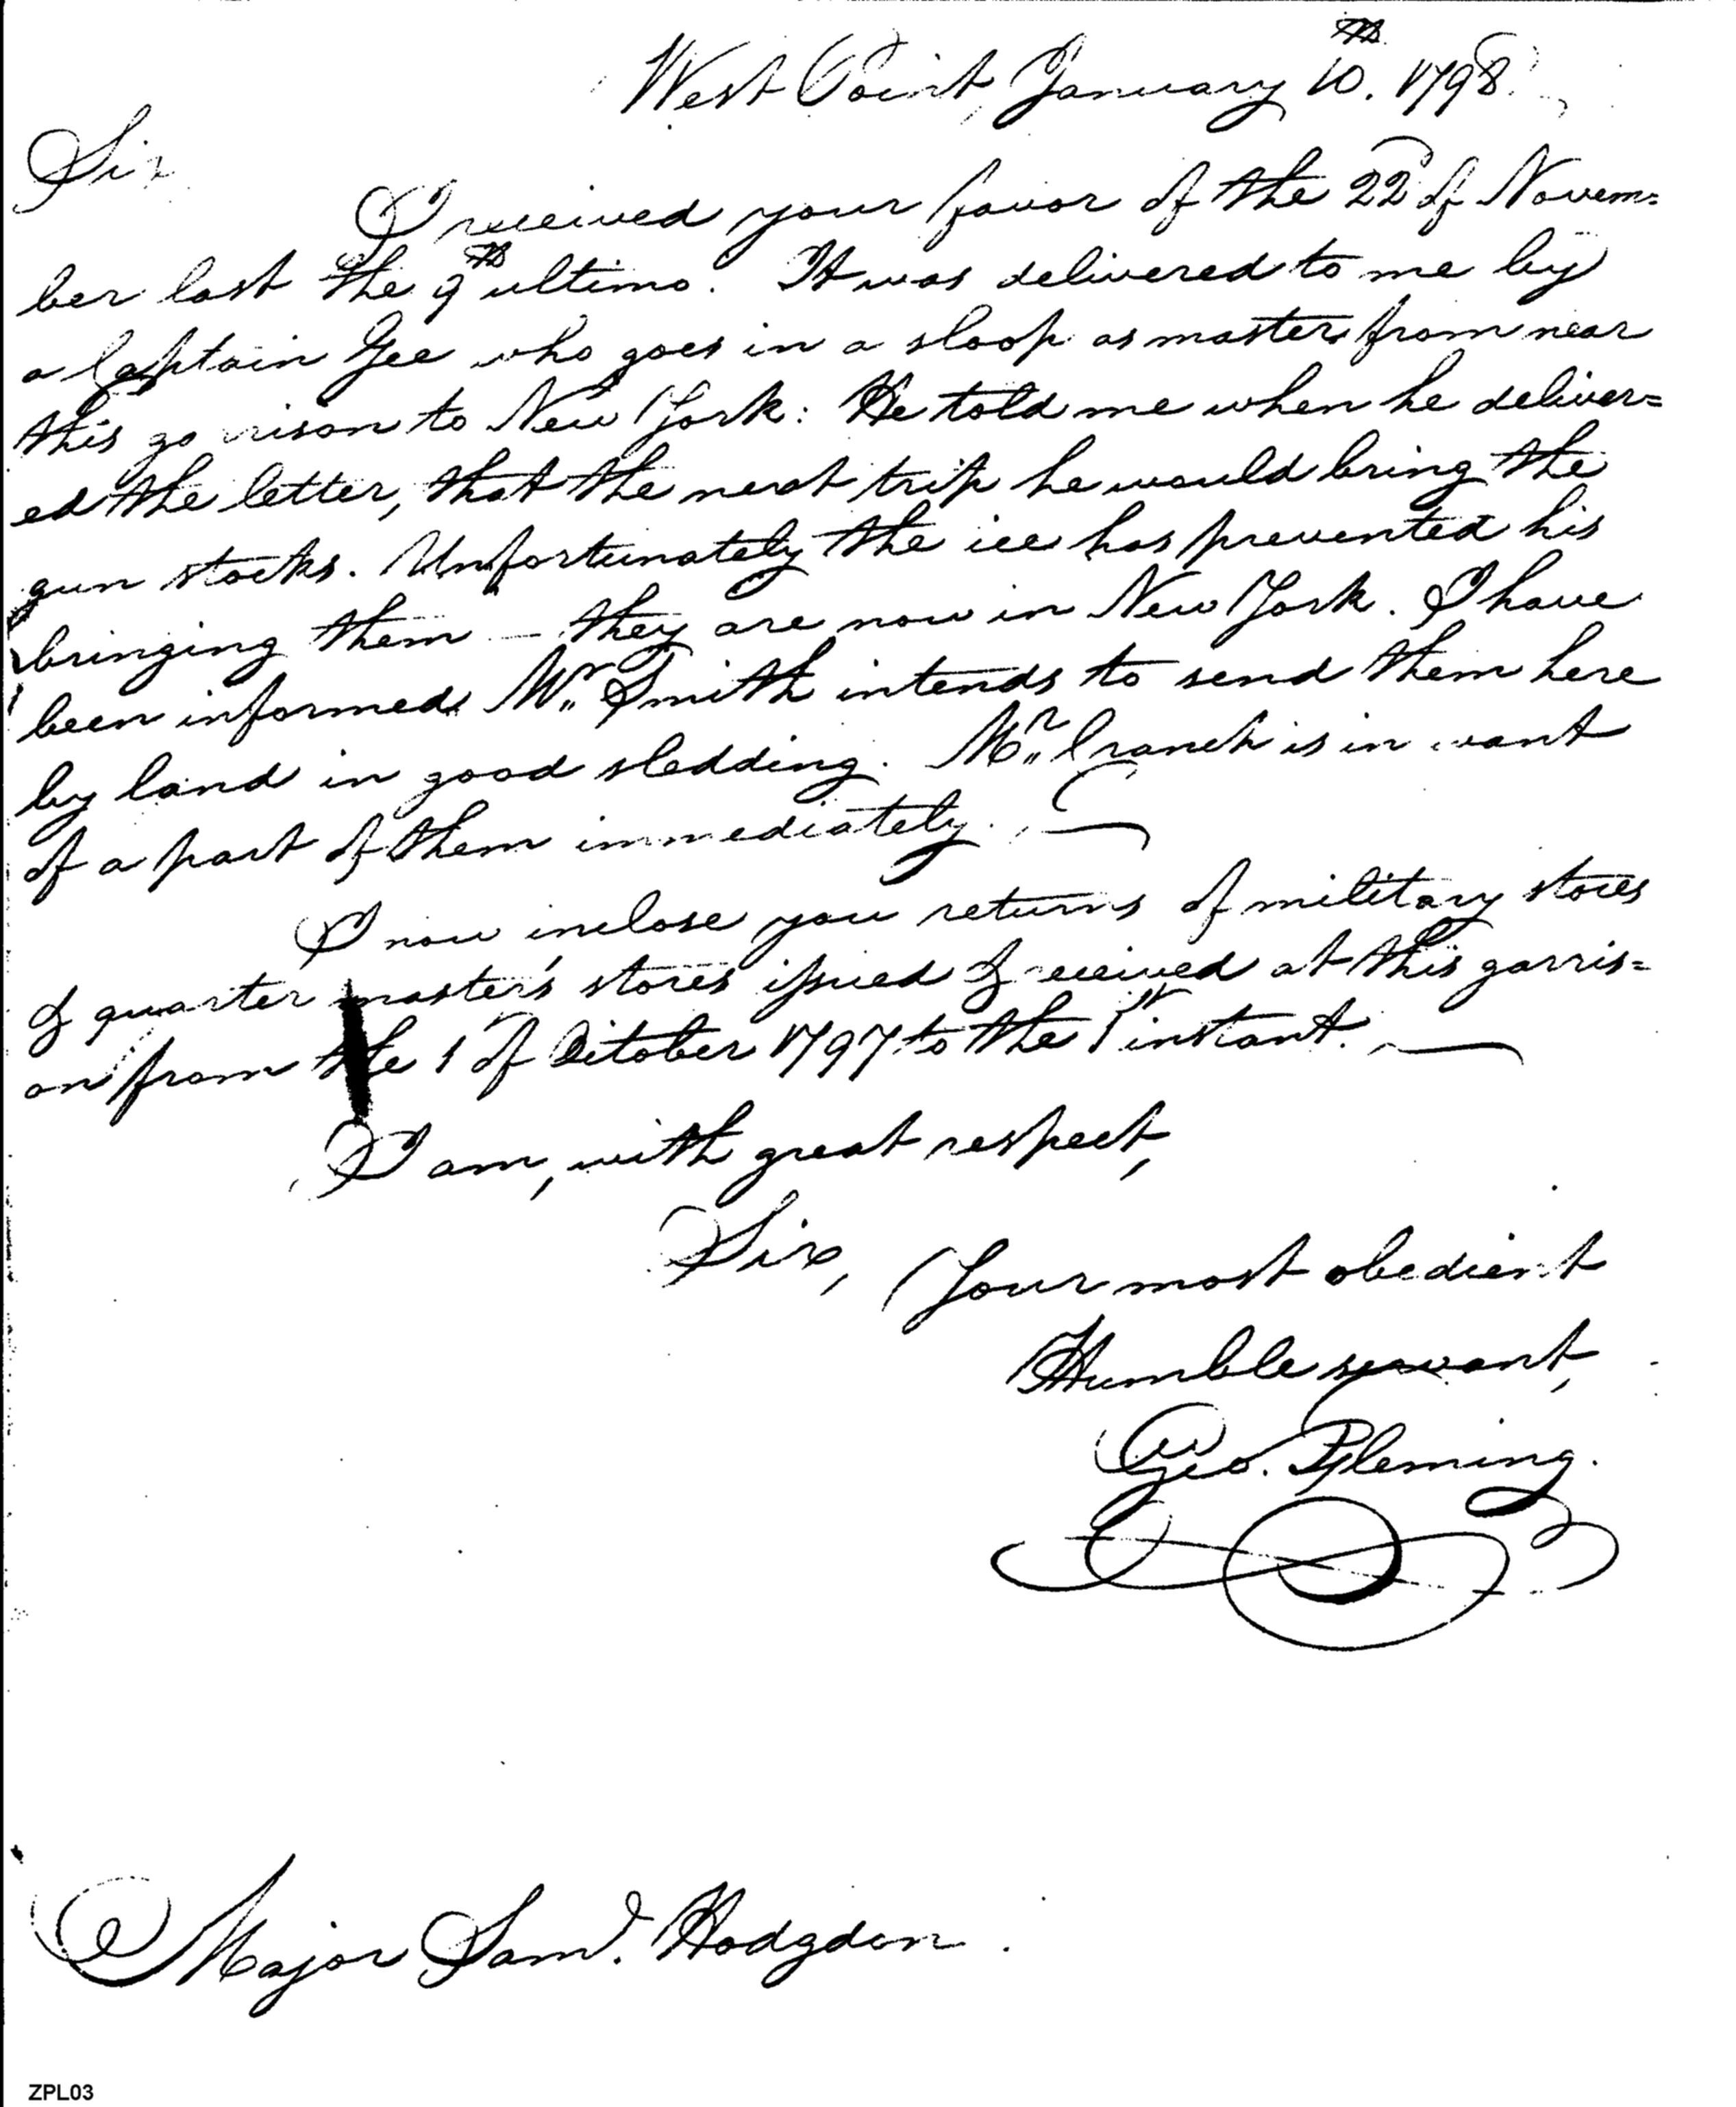 West Point, January 10.th 1798.
Sir
I received your favor of the 22d of Novem=
ber last the 9th ultimo. It was delivered to me by
a Captain Gee who goes in a sloop as master from near
this garrison to New York: He told me when he deliver=
ed the letter, that the next trip he would bring the
gun stocks. Unfortunately the ice has prevented his
bringing them — they are now in New York. I have
been informed Mr. Smith intends to send them here
by land in good sledding. Mr. Cranch is in want
of a part of them immediately. —
I now inclose you returns of military stores
& quarter master's stores issued & received at this garris=
on from the 1st of October 1797 to the 1st instant. —
I am, with great respect,
Sir, Your most obedient
Humble servant,
Geo. Fleming.
Major Saml. Hodgdon.
ZPL03